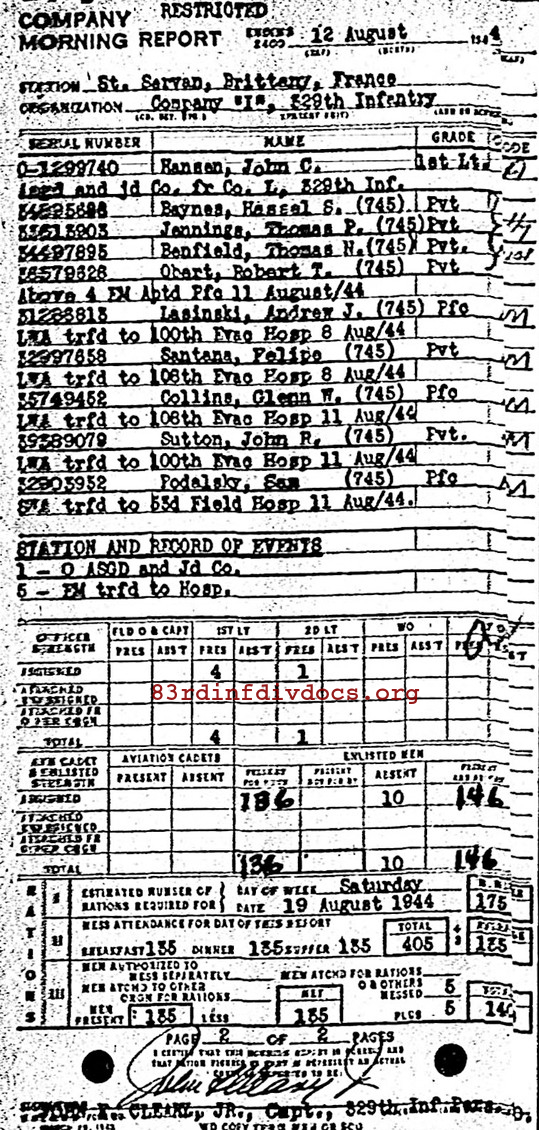 COMPANY RESTRICTED
MORNING REPORT ENDING 2400 12 August 1944
STATION St. Servan, Brittany, France
ORGANIZATION Company "I", 329th Infantry
SERIAL NUMBER NAME GRADE CODE
O-1299740 Hansen, John C. 1st Lt.
Asgd and jd Co. fr Co. L, 329th Inf.
Baynes, Hassel S. (745) Pvt
33613903 Jennings, Thomas P. (745) Pvt
34497895 Benfield, Thomas N. (745) Pvt.
36579628 Obart, Robert T. (745) Pvt
Above 4 EM Aptd Pfc 11 August/44
31288813 Lasinski, Andrew J. (745) Pfc
LWA trfd to 100th Evac Hosp 8 Aug/44
32997658 Santana, Felipe (745) Pvt
LWA trfd to 108th Evac Hosp 8 Aug/44
35749452 Collins, Glenn W. (745) Pfc
LWA trfd to 108th Evac Hosp 11 Aug/44
39389079 Sutton, John R. (745) Pvt.
LWA trfd to 100th Evac Hosp 11 Aug/44
32903952 Podalsky, Sam (745) Pfc
trfd to 53d Field Hosp 11 Aug/44.
STATION AND RECORD OF EVENTS
1 - O ASGD and Jd Co.
5 - EM trfd to Hosp.
OFFICER STRENGTH FLD O & CAPT 1ST LT 2D LT WO
PRES ABST PRES ABST PRES ABST PRES ABST
ASSIGNED 4 1
ATTACHED UNASSIGNED
ATTACHED FR OTHER ORGN
TOTAL 4 1
83rdinfdivdocs.org
AVN CADET & ENLISTED STRENGTH AVIATION CADETS ENLISTED MEN
PRESENT ABSENT PRESENT FOR DUTY PRESENT NOT FOR DY ABSENT PRESENT AND ABSENT
ASSIGNED 136 10 146
ATTACHED UNASSIGNED
ATTACHED FR OTHER ORGN
TOTAL 136 10 146
RATIONS
I ESTIMATED NUMBER OF RATIONS REQUIRED FOR DAY OF WEEK Saturday 175
DATE 19 August 1944
II MESS ATTENDANCE FOR DAY OF THIS REPORT TOTAL
BREAKFAST 135 DINNER 135 SUPPER 135 405 ÷ 3 135
III MEN AUTHORIZED TO MESS SEPARATELY MEN ATCHD FOR RATIONS
MEN ATCHD TO OTHER ORGN FOR RATIONS NET O & OTHERS MESSED 5 TOTAL
MEN PRESENT 135 LESS 135 PLUS 5 140
PAGE 2 OF 2 PAGES
I CERTIFY THAT THIS MORNING REPORT IS CORRECT AND
CLEARY, JR., Capt., 329th Inf Pers. O.